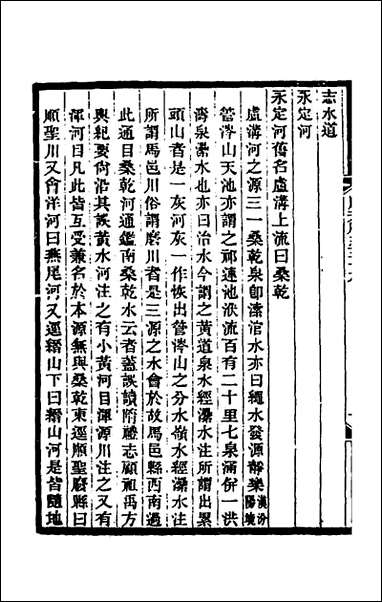 志水道
永定河
永定河舊名盧溝上流曰桑乾
盧溝河之源三一桑乾泉即漯涫水亦曰繩水發源靜樂漢汾陽境
管涔山天池亦謂之祁連池洑流百有二十里七泉滿併一洪
濤泉漯水也亦曰治水今謂之黃道泉水經漯水注所謂出累
頭山者是一灰河灰一作恢出管涔山之分水嶺水經漯水注
所謂馬邑川俗謂磨川者是三源之水會於故馬邑縣西南過
此通目桑乾河通鑑南桑乾水云者蓋誤讀隋禮志顧祖禹方
輿紀要倘沿其誤黃水河注之有小黃河目渾源川注之又有
渾河目凡此皆互受兼名於本源無與桑乾東逕順聖廢縣曰
順聖川又會洋河曰燕尾河又逕䃲山下曰䃲山河是皆隨地